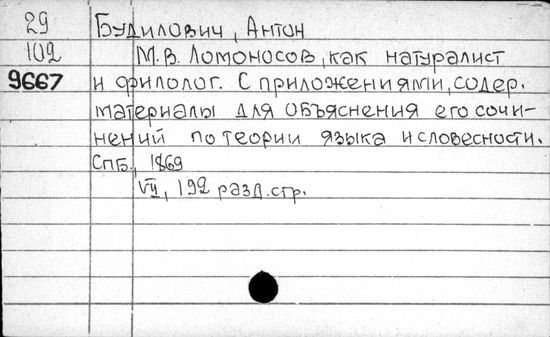 29 Будилович, Антон
102 М.В. Ломоносов, как натуралист
9667 и филолог. С приложениями, содер.
материалы для объяснения его сочи-
нений по теории языка и словесности.
Спб., 1869
VII, 192 разд. стр.